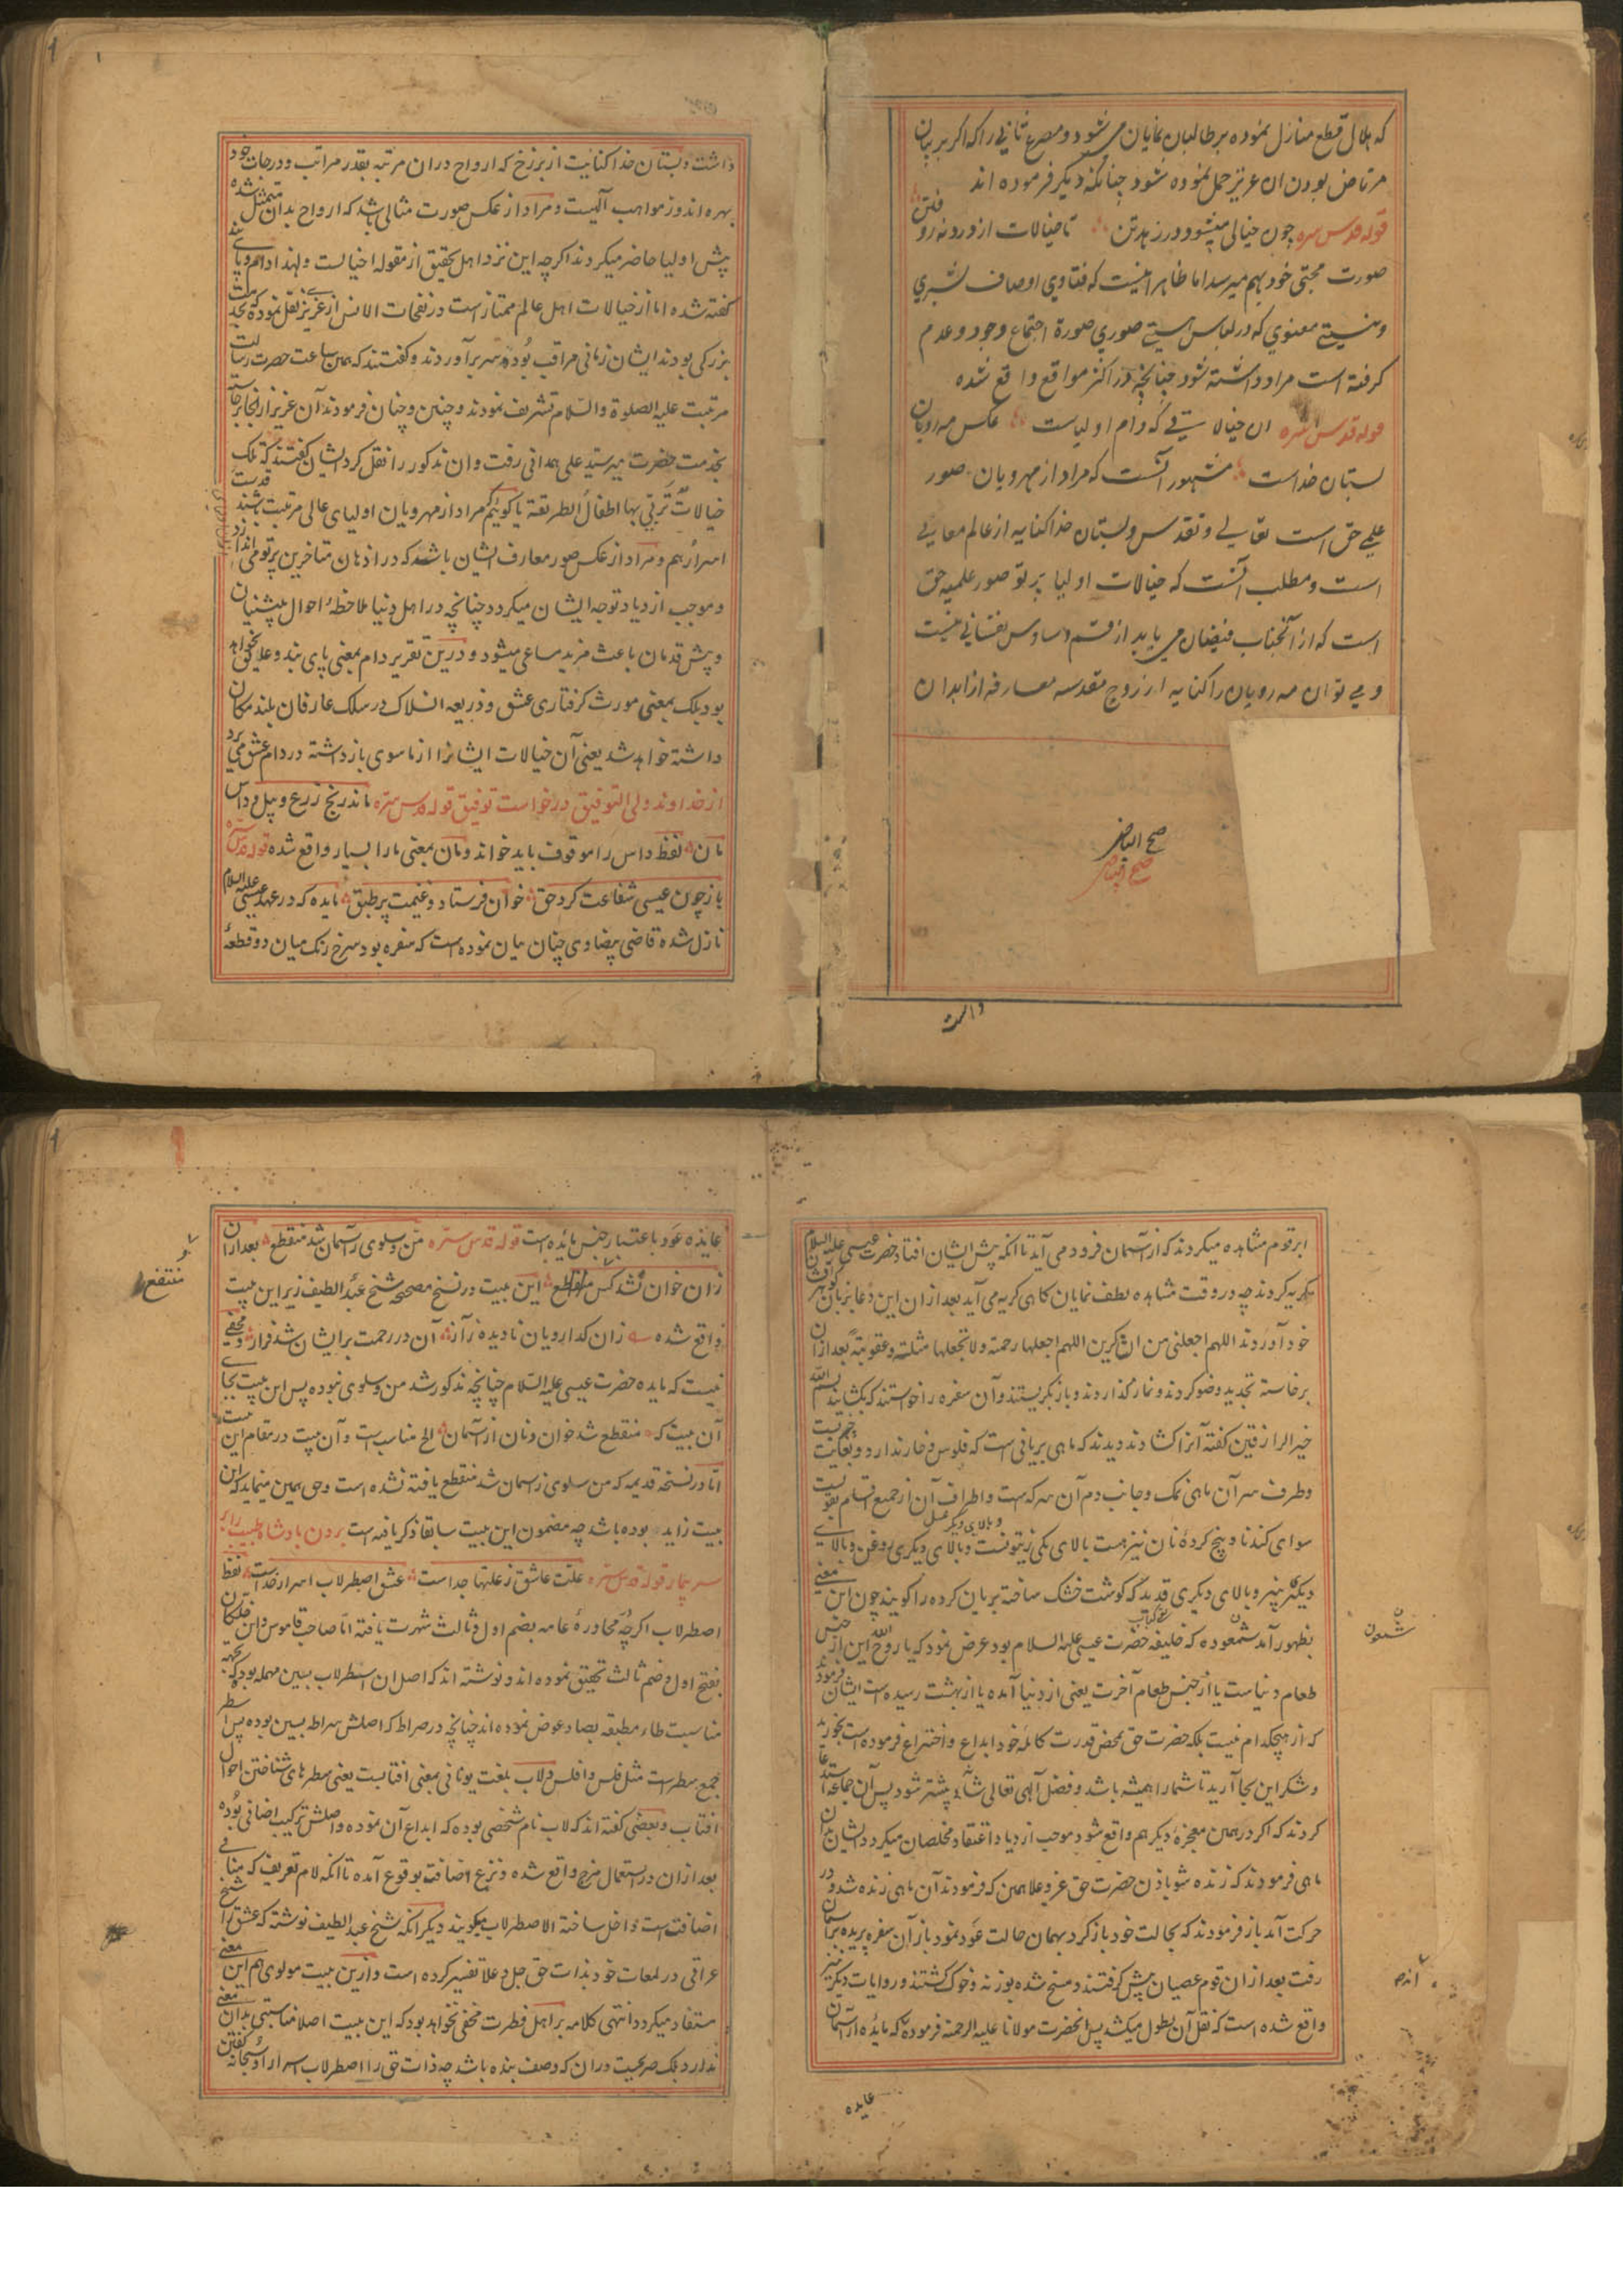 که هلال قطع منازل نموده بر طالبان نمایان می شود و مصرع ثانی را که اکر بر بیان
مرتاض بودن ان عزیز حمل نموده شود چنانکه دیکر فرموده اند
قوله قدس سره چون خیالی میشود در زهد تن تا خیالات از درونه روفتن
صورت مجتبی خود بهم میرسد اما ظاهر اینست که فتاوی اوصاف بشری
و نیستی معنوی که در لباس هستی صوری صورة اجتماع وجود و عدم
کرفته است مراد داشته شود چنانچه در اکثر مواقع واقع شده
قوله قدس سره ان خیالاتی که دام اولیاست عکس مه رویان
بستان خداست مشهور آنست که مراد از مهرویان صور
علمی حق است تعالی و تقدس و بستان خدا کنایه از عالم معانی
است و مطلب آنست که خیالات اولیا پرتو صور علمیه حق
است که از آنجناب فیضان می یابد از قسم وساوس نفسانی نیست
و می توان مه رویان را کنایه از روح مقدسه معارفه از ابدان
صح البیاض
صح البیاض
داشت
داشت و بستان خدا کنایت از برزخ که ارواح دران مرتبه بقدر مراتب و درجات خود
بهره اندوز مواهب آلهیست و مراد از عکس صورت مثالی باشد که ارواح بدان متمثل شده
پیش اولیا حاضر میکردند اکرچه این نزد اهل تحقیق از مقوله خیالست و لهذا دام و پای بند
کفته شده اما از خیالات اهل عالم ممتاز است در نفحات الانس از عزیزی نقل نموده که بخدمت
بزرکی بودند ایشان زمانی مراقب بوده سر برآوردند و کفتند که همین ساعت حضرت رسالت
مرتبت علیه الصلوة والسلام تشریف نمودند و چنین و چنان فرمودند آن عزیز از انجا برخاسته
بخدمت حضرت میر سید علی همدانی رفت و ان مذکور را نقل کرد ایشان کفتند که تلک
خیالات تربی بها اطفال الطریقة یا کوئیم مراد از مهرویان اولیای عالی مرتبت باشند قدست
اسرارهم و مراد از عکس صور معارف ایشان باشد که در اذهان متاخرین پرتو می اندازد
و موجب ازدیاد توجه ایشان میکردد چنانچه در اهل دنیا ملاحظۀ احوال پیشینیان
و پیش قدمان باعث مزید مساعی میشود و درین تقریر دام بمعنی پای بند و علایق نخواهد
بود بلک بمعنی مورث کرفتاری عشق و ذریعه انسلاک در سلک عارفان بلند مکان
داشته خواهد شد یعنی آن خیالات ایشانرا از ماسوی باز داشته در دام عشق می برد
از خداوند ولی التوفیق درخواست توفیق قوله قدس سره ماند رنج زرع و بیل و داس
مان لفظ داس را موقوف باید خواند و مان بمعنی ما را بسیار واقع شده قوله قدس سره
باز چون عیسی شفاعت کرد حق خوان فرستاد و غنیمت بر طبق مایده که در عهد عیسی علیه السلام
نازل شده قاضی بیضاوی چنان بیان نموده است که سفره بود سرخ رنک میان دو قطعۀ
ابر قوم مشاهده میکردند که از آسمان فرود می آید تا آنکه پیش ایشان افتاد حضرت عیسی علیه السلام
بکریه کردند چه در وقت مشاهده لطف نمایان کاهی کریه می آید بعد ازان این دعا بزبان
خود آوردند اللهم اجعلنی من الشاکرین اللهم اجعلها رحمة ولا تجعلها مثلة وعقوبة بعد ازان
برخاسته تجدید وضو کردند و نماز گذاردند و باز بکریستند و آن سفره را خواستند که بکشایند بسم الله
خیر الرازقین کفته آنرا کشادند و دیدند که ماهی بریانی است که فلوس و خار ندارد و بغایت چرب است
و طرف سر آن ماهی نمک و جانب دم آن سرکه است و اطراف آن از جمیع اقسام بقولیست
سوای کندنا و پنج کردۀ نان نیز هست بالای یکی زیتونست و بالای دیکری روغن و بالای
و بالای دیکر عسل
دیکر پنیر و بالای دیکری قدید که کوشت خشک ساخته بریان کرده را کویند چون این معنی
بظهور آمد شمعون که خلیفه حضرت عیسی علیه السلام بود عرض نمود که یا روح الله این از جنس
طعام دنیاست یا از جنس طعام آخرت یعنی از دنیا آمده یا از بهشت رسیده است ایشان فرمودند
که از هیچکدام نیست بلکه حضرت حق محض قدرت کامله خود ابداع و اختراع فرموده است بخورید
و شکر این بجا آرید تا شما را همیشه باشد و فضل الهی تعالی شانه بیشتر شود پس آن جماعه استدعا
کردند که اکر در همین معجزه دیکر هم واقع شود موجب ازدیاد اعتقاد مخلصان میکردد ایشان بدان
ماهی فرمودند که زنده شو باذن حضرت حق عز و علا همین که فرمودند آن ماهی زنده شد و در
حرکت آمد باز فرمودند که بحالت خود باز کرد بهمان حالت عود نمود باز آن سفره پریده بر آسمان
رفت بعد ازان قوم عصیان پیش کرفتند و مسخ شده بوزنه و خوک کشتند و روایات دیکر نیز
واقع شده است که نقل آن بطول میکشد پس انحضرت مولانا علیه الرحمة فرموده که مایده از آسمان
شمعون
عایده
عایده عود باعتبار جنس مایده است قوله قدس سره من و سلوی ز آسمان شد منقطع بعد ازان
زان خوان نشد کس منتفع این بیت در نسخ مصححه شیخ عبد اللطیف زیر این بیت
واقع شده زان کدارویان نادیده ز آز آن در رحمت بر ایشان شد فراز و مخفی
نیست که مایده حضرت عیسی علیه السلام چنانچه مذکور شد من و سلوی نبوده پس این بیت بجای
آن بیت که منقطع شد خوان و نان از آسمان الخ مناسب است و آن بیت در مقام این بیت
اما در نسخه قدیمه که من سلوی ز آسمان شد منقطع یافته نشده است وحی همین مینماید که این
بیت زاید بوده باشد چه مضمون این بیت سابقا ذکر یافته است بردن پادشاه طبیب را بر
سر بیمار قوله قدس سره علت عاشق ز علتها جداست عشق اصطرلاب اسرار خداست لفظ
اصطرلاب اکرچه محاورۀ عامه بضم اول و ثالث شهرت یافته اما صاحب قاموس و ابن خلکان
بفتح اول و ضم ثالث تحقیق نموده اند و نوشته اند که اصل ان اسطرلاب بسین مهمله بوده که بجهة
مناسبت طاء مطبقه بصاد عوض نموده اند چنانچه در صراط که اصلش سراط بسین بوده پس اسطر
جمع سطر است مثل فلس و افلس و لاب بلغت یونانی بمعنی افتابست یعنی سطرهای شناختن احوال
افتاب و بعضی کفته اند که لاب نام شخصی بوده که ابداع آن نموده و اصلش ترکیب اضافی بوده
بعد ازان در استعمال مزج واقع شده و نزع اضافت بوقوع آمده تا آنکه لام تعریف که منافی
اضافت است داخل ساخته الاصطرلاب میکویند دیکر انکه شیخ عبد اللطیف نوشته که عشق را شیخ
عراقی در لمعات خود بذات حق جل و علا تفسیر کرده است و ازین بیت مولوی هم این معنی
مستفاد میکردد انتهی کلامه بر اهل فطرت مخفی نخواهد بود که این بیت اصلا مناسبتی بدان معنی
ندارد بلک صریحست دران که وصف بنده باشد چه ذات حق را اصطرلاب اسرار او سبحانه کفتن
منتفع